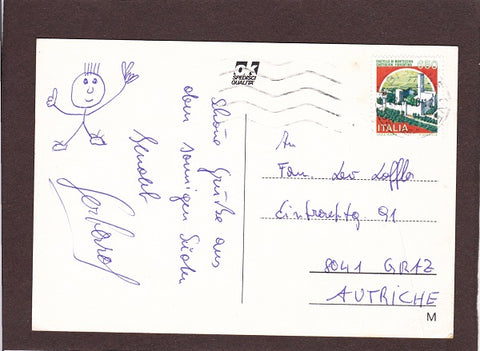 Schöne Grüße aus
dem sonnigen Süden
sendet
Gerhard
OK
SPEDISCI
QUALITÀ
CASTELLO DI MONTECCHIO
CASTIGLION FIORENTINO
650
ITALIA
An
Fam. Leo Löffler
91
8041 GRAZ
AUTRICHE
M